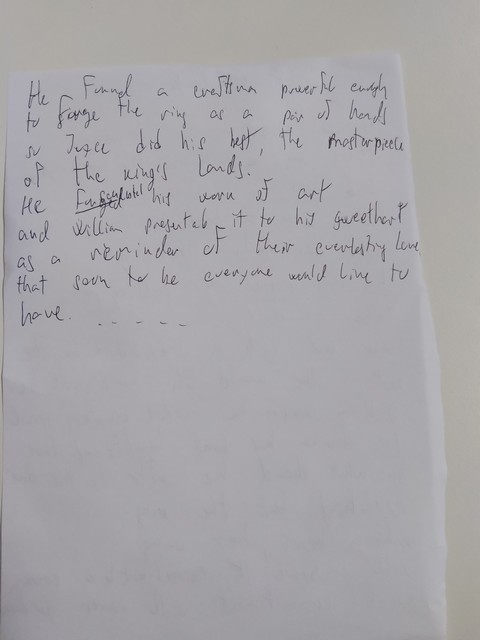 He Found a powerful enough
to forge the ring as a pair of hands
so Joyce did his best, the masterpiece
of the king's lands.
He his work of art
and William presented it to his sweethart
as a reminder of their everlasting love
that soon to be everyone would love to
have. - - - - -